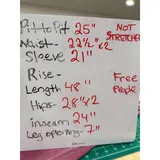 Pit to Pit 25"
Waist- 22½"x2
Sleeve 21"
Rise-
Length 48"
Hips- 28"x2
inseam 24"
Leg opening- 7"
NOT
STRETCHED
Free
People